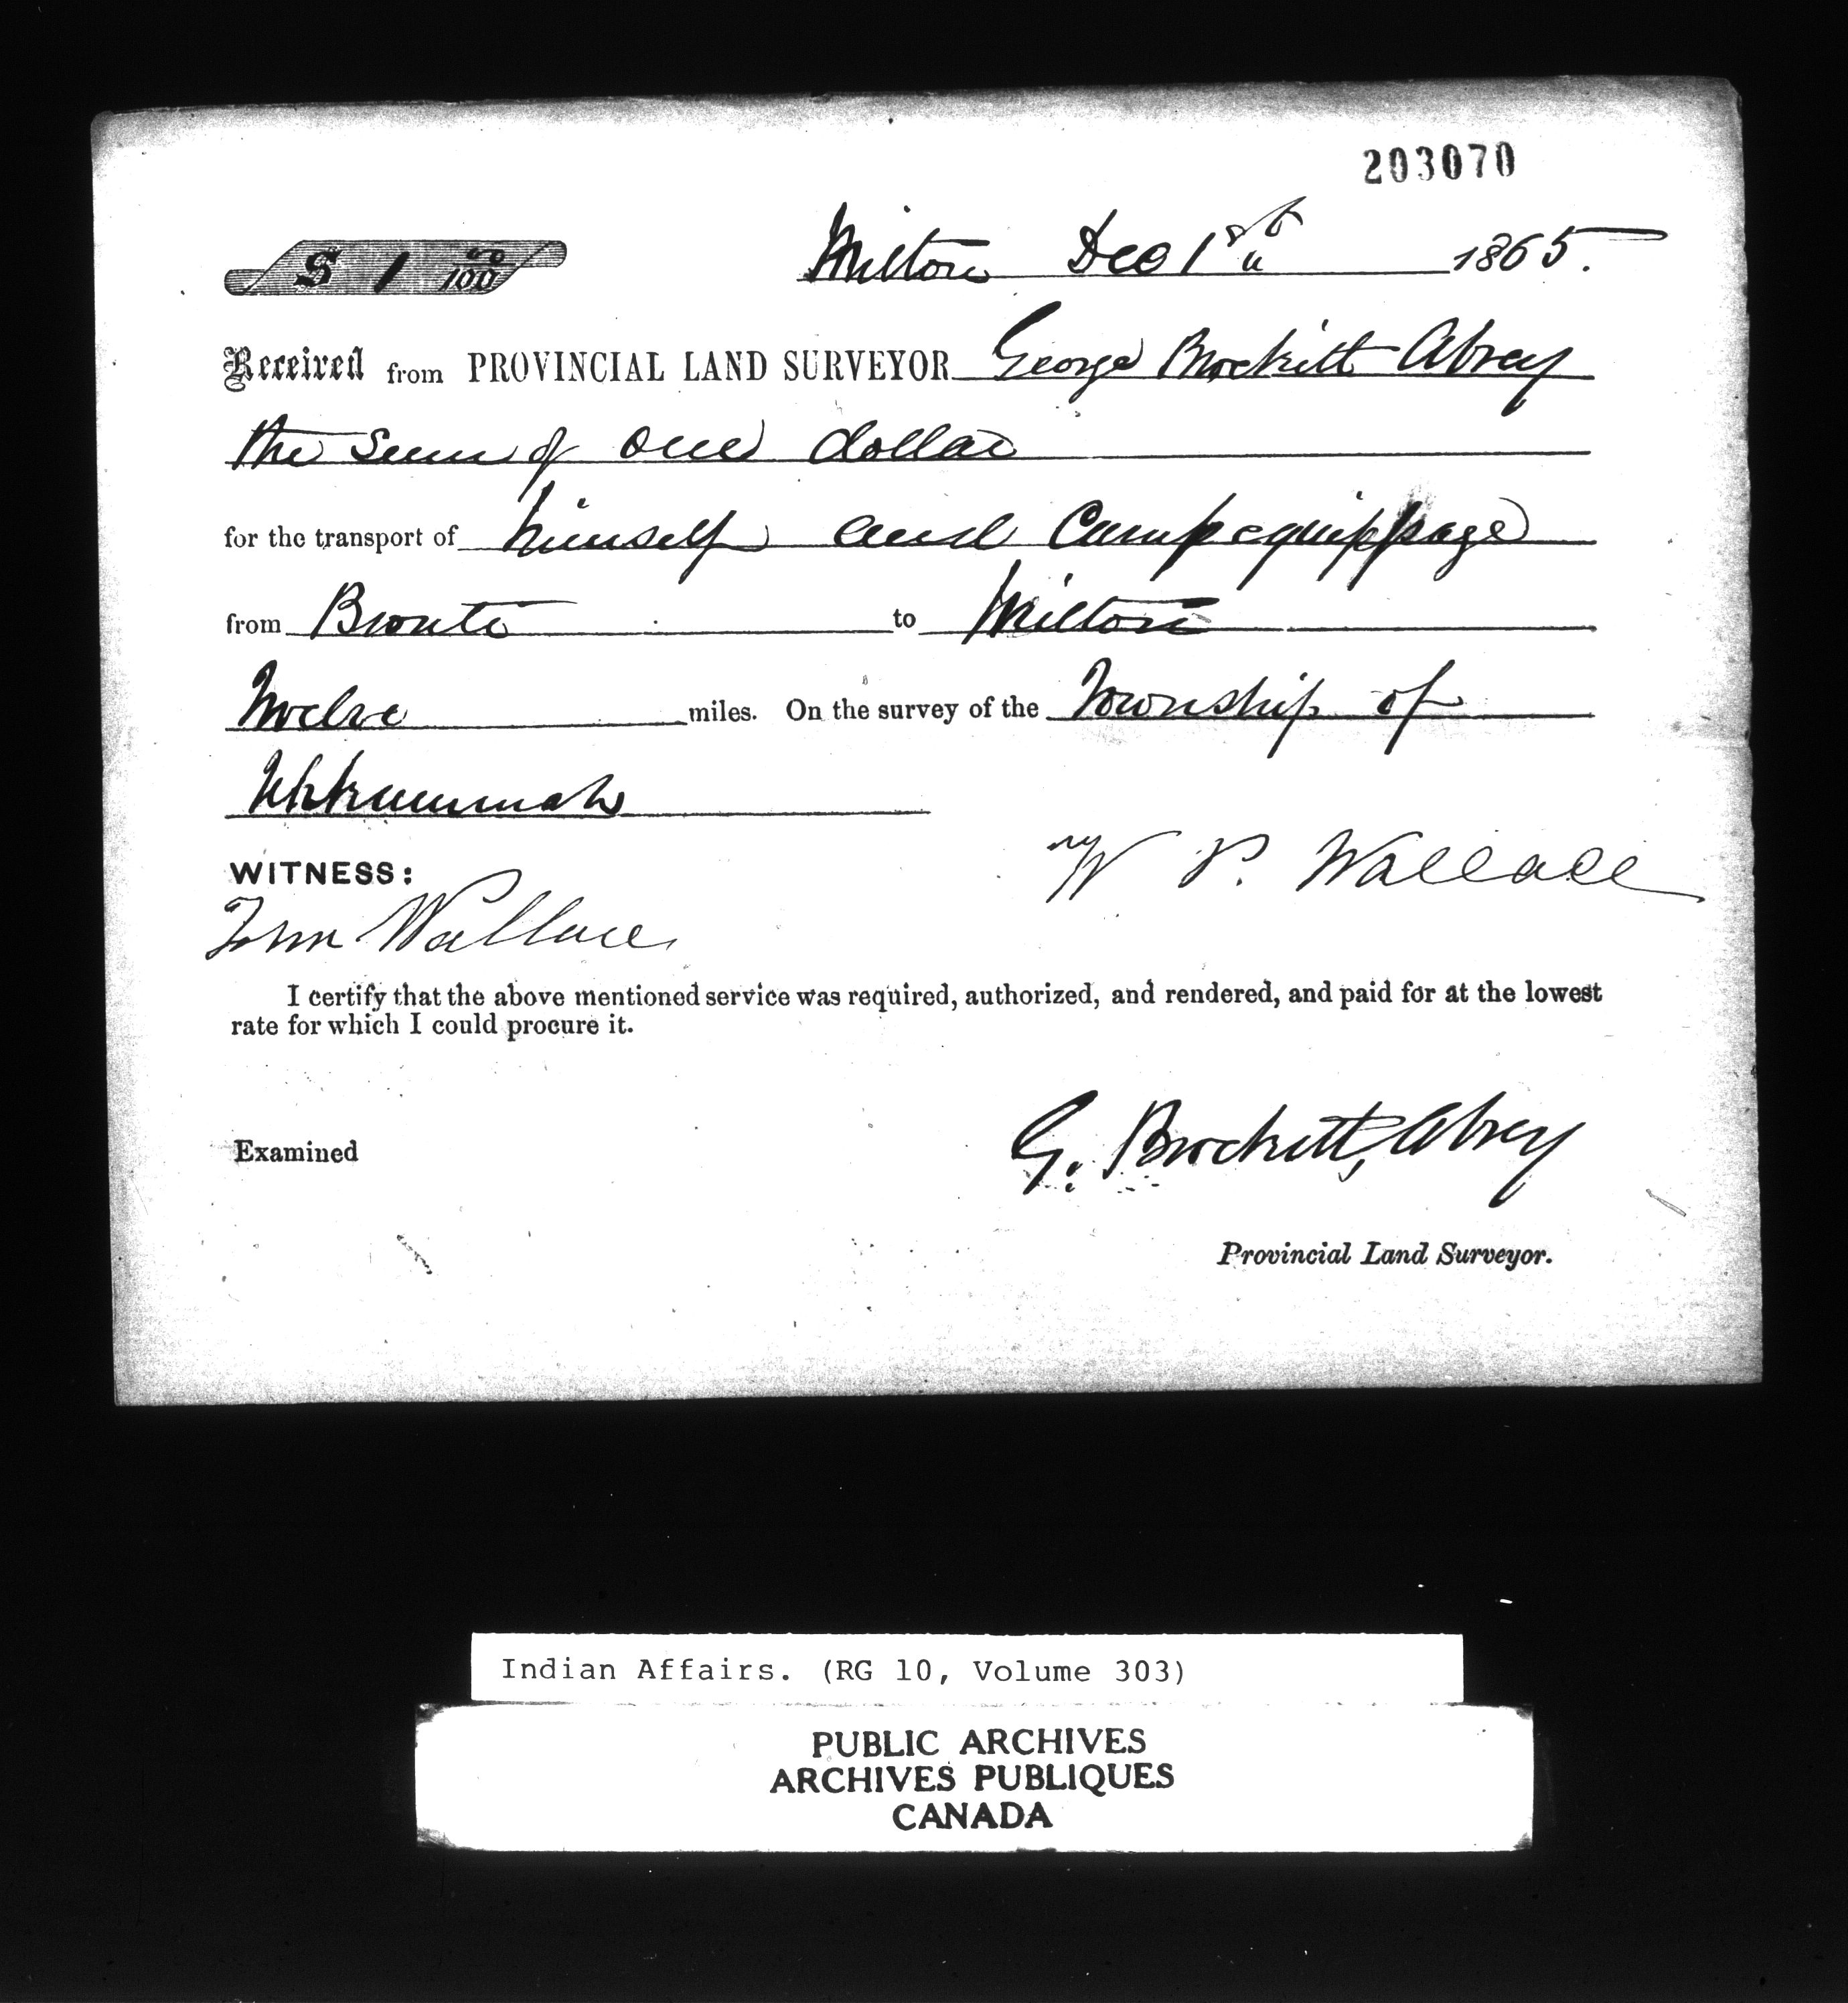 203070
$ 1 00/100
Milton Dec 1st 1865.
Received from PROVINCIAL LAND SURVEYOR George Brockitt Abrey
the sum of one dollar
for the transport of himself and Camp equippage
from Bronte to Milton
Twelve miles. On the survey of the Township of
W P. Wallace
WITNESS:
John Wallace
I certify that the above mentioned service was required, authorized, and rendered, and paid for at the lowest
rate for which I could procure it.
Examined
G. Brockitt Abrey
Provincial Land Surveyor.
Indian Affairs. (RG 10, Volume 303)
PUBLIC ARCHIVES
ARCHIVES PUBLIQUES
CANADA